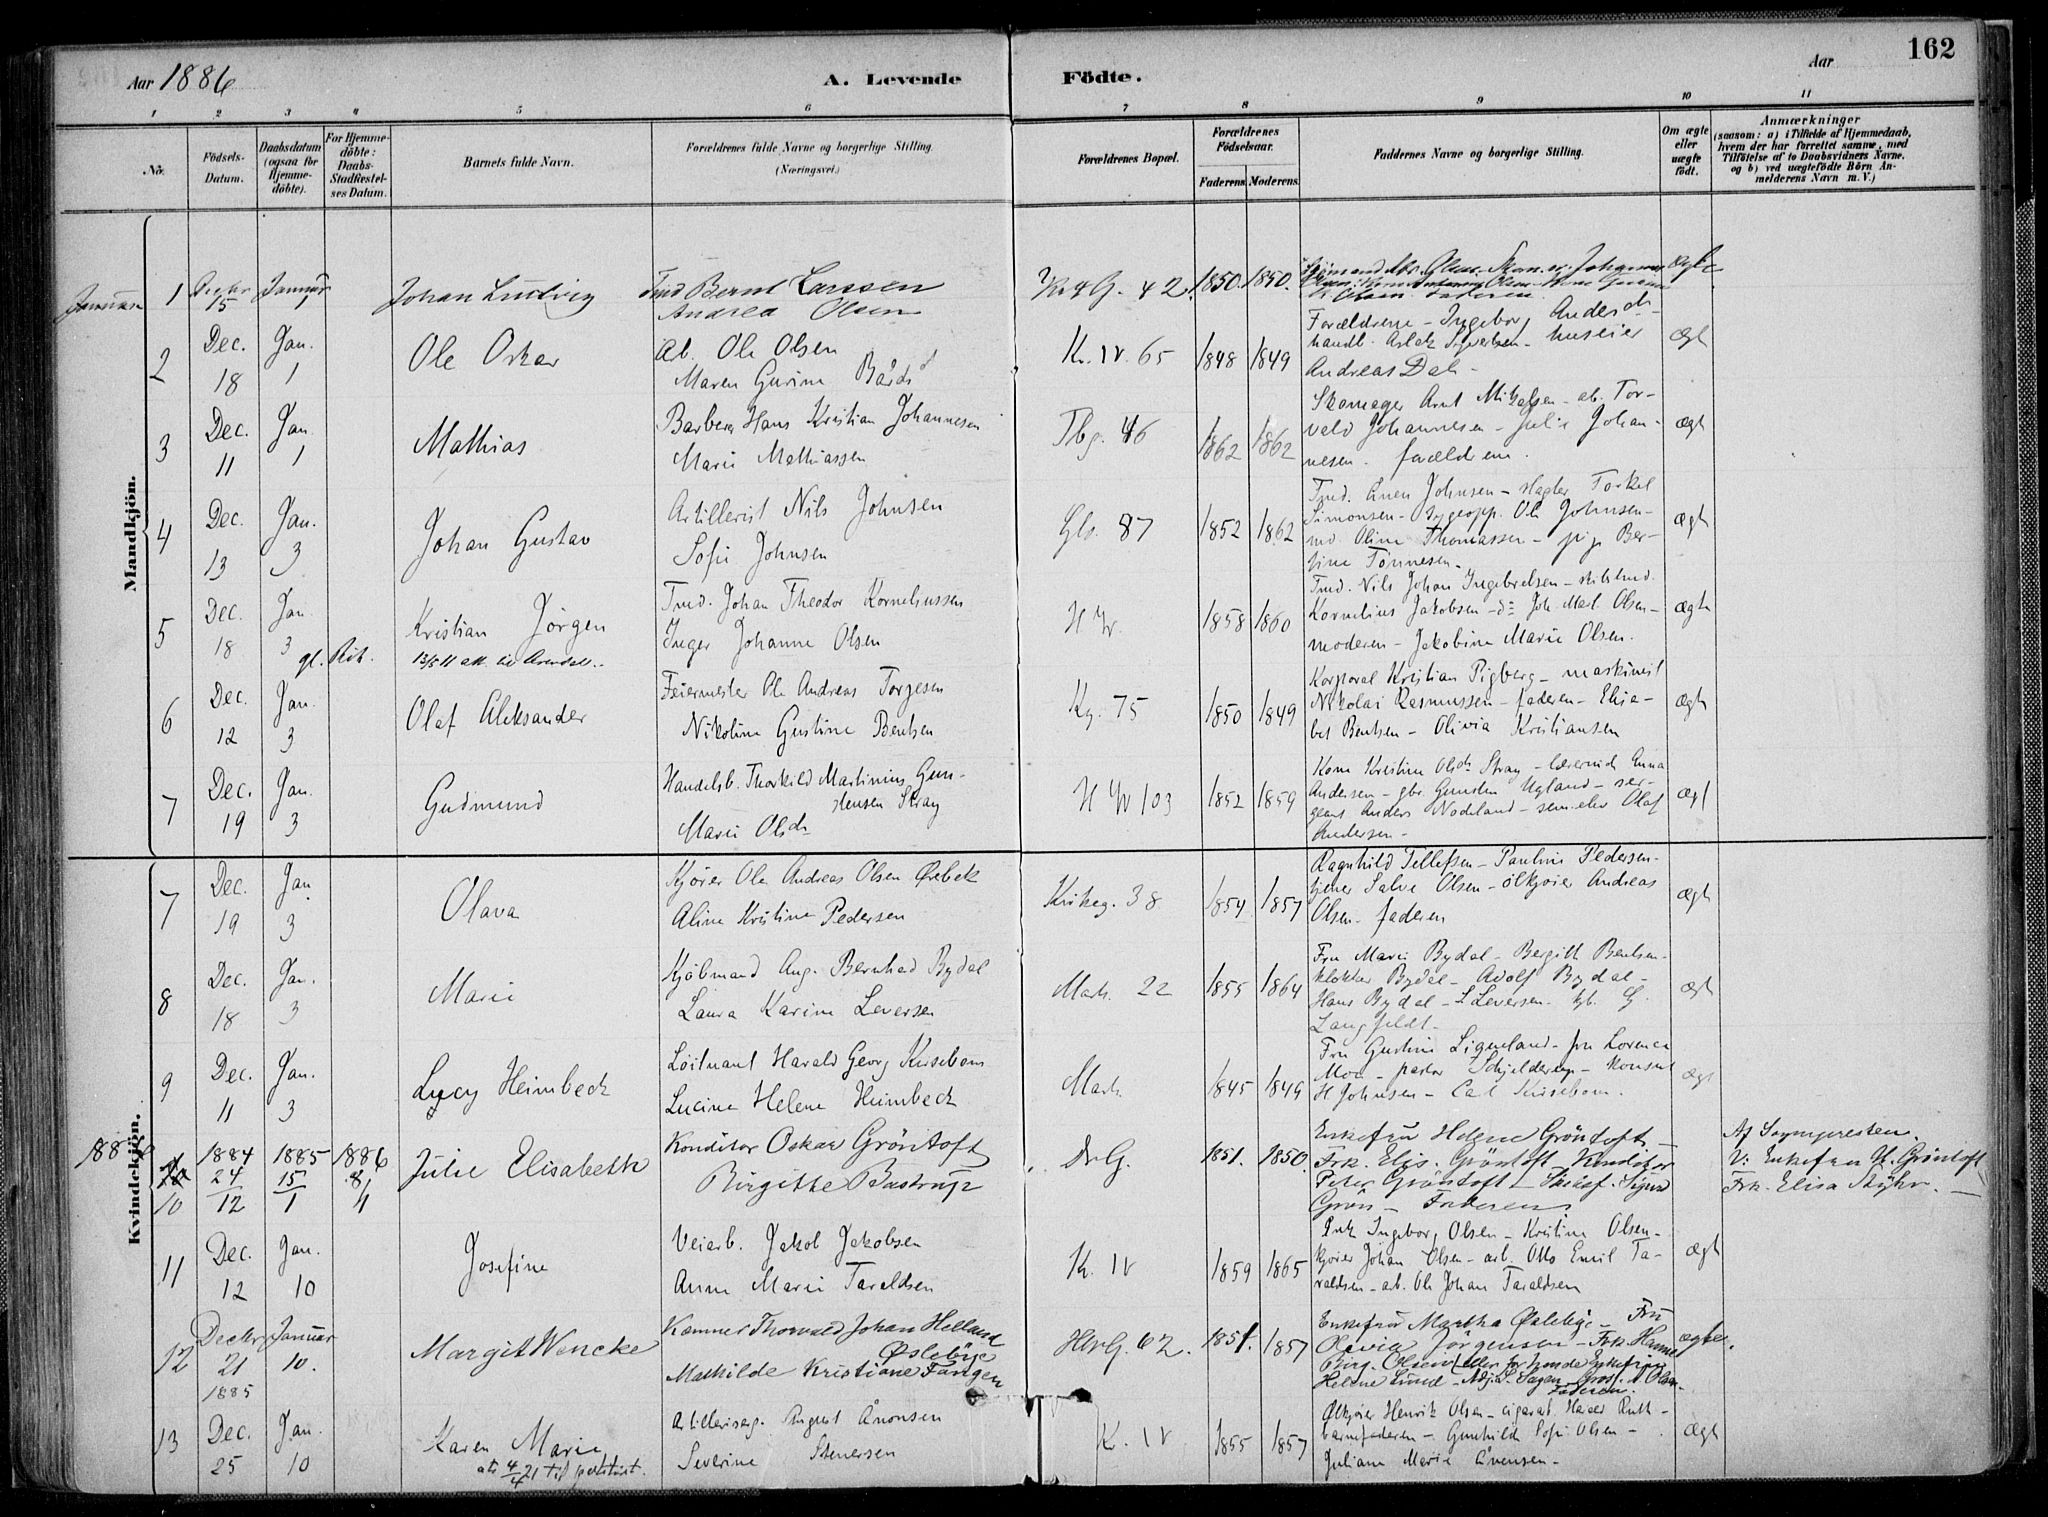 Aar 1886
A. Levende
Födte.
Aar
162
1 2 3 4 5 6 7 8 9 10 11
No.
Födsels-
Datum.
Daabsdatum
(ogsaa for
Hjemme-
döbte).
For Hjemme-
döbte:
Daabs-
Stadfæstel-
ses Datum.
Barnets fulde Navn.
Forældrenes fulde Navne og borgerlige Stilling.
(Næringsvei.)
Forældrenes Bopæl.
Forældrenes
Födselsaar.
Faderens. Moderens.
Faddernes Navne og borgerlige Stilling.
Om ægte
eller
uægte
födt.
Anmærkninger
(saasom: a) i Tilfælde af Hjemmedaab,
hvem der har forrettet samme, med
Tilföielse af to Daabsvidners Navne.
og b) ved uægtefödte Börn An-
melderens Navn m. V.)
Mandkjön.
Januar
1 Decbr 15 Januar 1 Johan Ludvig
Tmd Bernt Larssen
Andrea Olsen
42. 1850. 1850.
Faderen.
ægte
2 Dec. 18 Jan. 1 Ole Oskar
Ab. Ole Olsen
Maren Gurine Bårdsd
Kr. IV. 65 1848 1849
Forældrene - Ingeborg Andersd. -
handlb. Aslak Syvertsen - huseier
Andreas Dal -
ægt
3 Dec. 11 Jan. 1 Mathias
Barber Hans Kristian Johannesen
Marie Mathiassen
Tbg. 46 1862 1862
Skomager Arnt Mikalsen - ab. Tor-
vald Johannesen - Julie Johan-
nesen. forældrene.
ægt
4 Dec. 13 Jan. 3 Johan Gustav
Artillerist Nils Johnsen
Sofie Johnsen
Gls. 87 1852 1862
Tmd. Anen Johnsen - slagter Torkel
Simonsen - sygeopp. Ole Johnsen -
md. Oline Thomassen - pige Ber-
tine Tönnesen -
ægt
5 Dec. 18 Jan. 3 Kristian Jörgen
gl. Rit. 13/5 11 att. til Arendal.
Tmd. Johan Theodor Korneliussen
Inger Johanne Olsen
H W. 1858 1860
Tmd. Nils Johan Ingebretsen -
Kornelius Jakobsen - do Joh. Mat. Olsen -
moderen - Jakobine Marie Olsen.
ægte
6 Dec. 12 Jan. 3 Olaf Aleksander
Feiermester Ole Andreas Torjesen
Nikoline Gustine Bentsen
Kg. 75 1850 1849
Korporal Kristian Pigberg - maskinist
Nikolai Rasmussen - faderen - Elisa-
bet Bentsen - Olivia Kristiansen
ægt
7 Dec. 19 Jan. 3 Gudmund
Handelsb. Thorkild Martinius Gun-
stensen Stray
Marie Olsdr
H W 103 1852 1859
Kone Kristine Olsdr Stray - lærerinde Emma
Andersen - gbr. Gunsten Ugland - ser-
geant Anders Nodeland - sem.elev Olaf
Andersen -
ægt
Kvindekjön.
7 Dec. 19 Jan 3 Olava
Kjörer Ole Andreas Olsen Örbek
Aline Kristine Pedersen
Kirkeg. 38 1854 1857
Ragnhild Tellefsen - Pauline Pedersen -
tjener Salve Olsen - ölkjörer Andreas
Olsen - faderen
ægt
8 Dec. 18 Jan. 3 Marie
Kjöbmand Aug. Bernhard Bydal
Laura Karine Leversen
Mark. 22 1855 1864
Fru Marie Bydal - Bergith Bentsen -
klokker Bydal - Adolf Bydal -
Hans Bydal - L Leversen - kjb. G.
Langfeldt -
ægt
9 Dec. 11 Jan. 3 Lucy Heimbeck
Löitnant Harald Georg Kirsebom
Lucine Helene Heimbeck
Mark. 1845 1849
Fru Gustine Ligneland - fru Lorence
Moe - pastor Schjelderup - konsul
H Johnsen - Carl Kirsebom.
ægt
1886
10 1884 24/12 1885 15/1 1886 8/1 Julie Elisabeth
Konditor Oskar Gröntoft
Birgitte Bastrup
Dr.G. 1851. 1850.
Enkefru Helene Gröntoft -
Frk. Elis. Gröntoft Konditor
Peter Gröntoft - Sigurd
Grön - Faderen
Af Sognepresten.
V: Enkefru H. Gröntoft
Frk. Elisa
11 Dec. 12 Jan. 10 Josefine
Veiarb. Jakob Jakobsen
Anne Marie Taraldsen
K. IV 1859 1865
Ingeborg Olsen - Kristine Olsen -
kjörer Johan Olsen - arb. Otto Emil Ta-
raldsen - ab. Ole Johan Taraldsen
ægt
12 Decbr 21 1885 Januar 10. Margit Wencke
Kæmner Thorvald Johan Helland
Öslebye
Mathilde Kristiane Fangen
62. 1851. 1857
Enkefru Martha Öslebye - Fru
Olivia Jörgensen - Frk. Hanne
Birg. Olsen
Helene Lund - Adj. S. Sagen
Faderen.
ægte.
13 Dec. 25 Jan. 10 Karen Marie
att. 4/4 21
Artilleriserg. August Ånonsen
Severine Stenersen
K. IV 1855 1857
Ölkjörer Henrik Olsen -
barnefaderen - Gunhilde Sofie Olsen -
Juliane Marie Evensen -
ægt